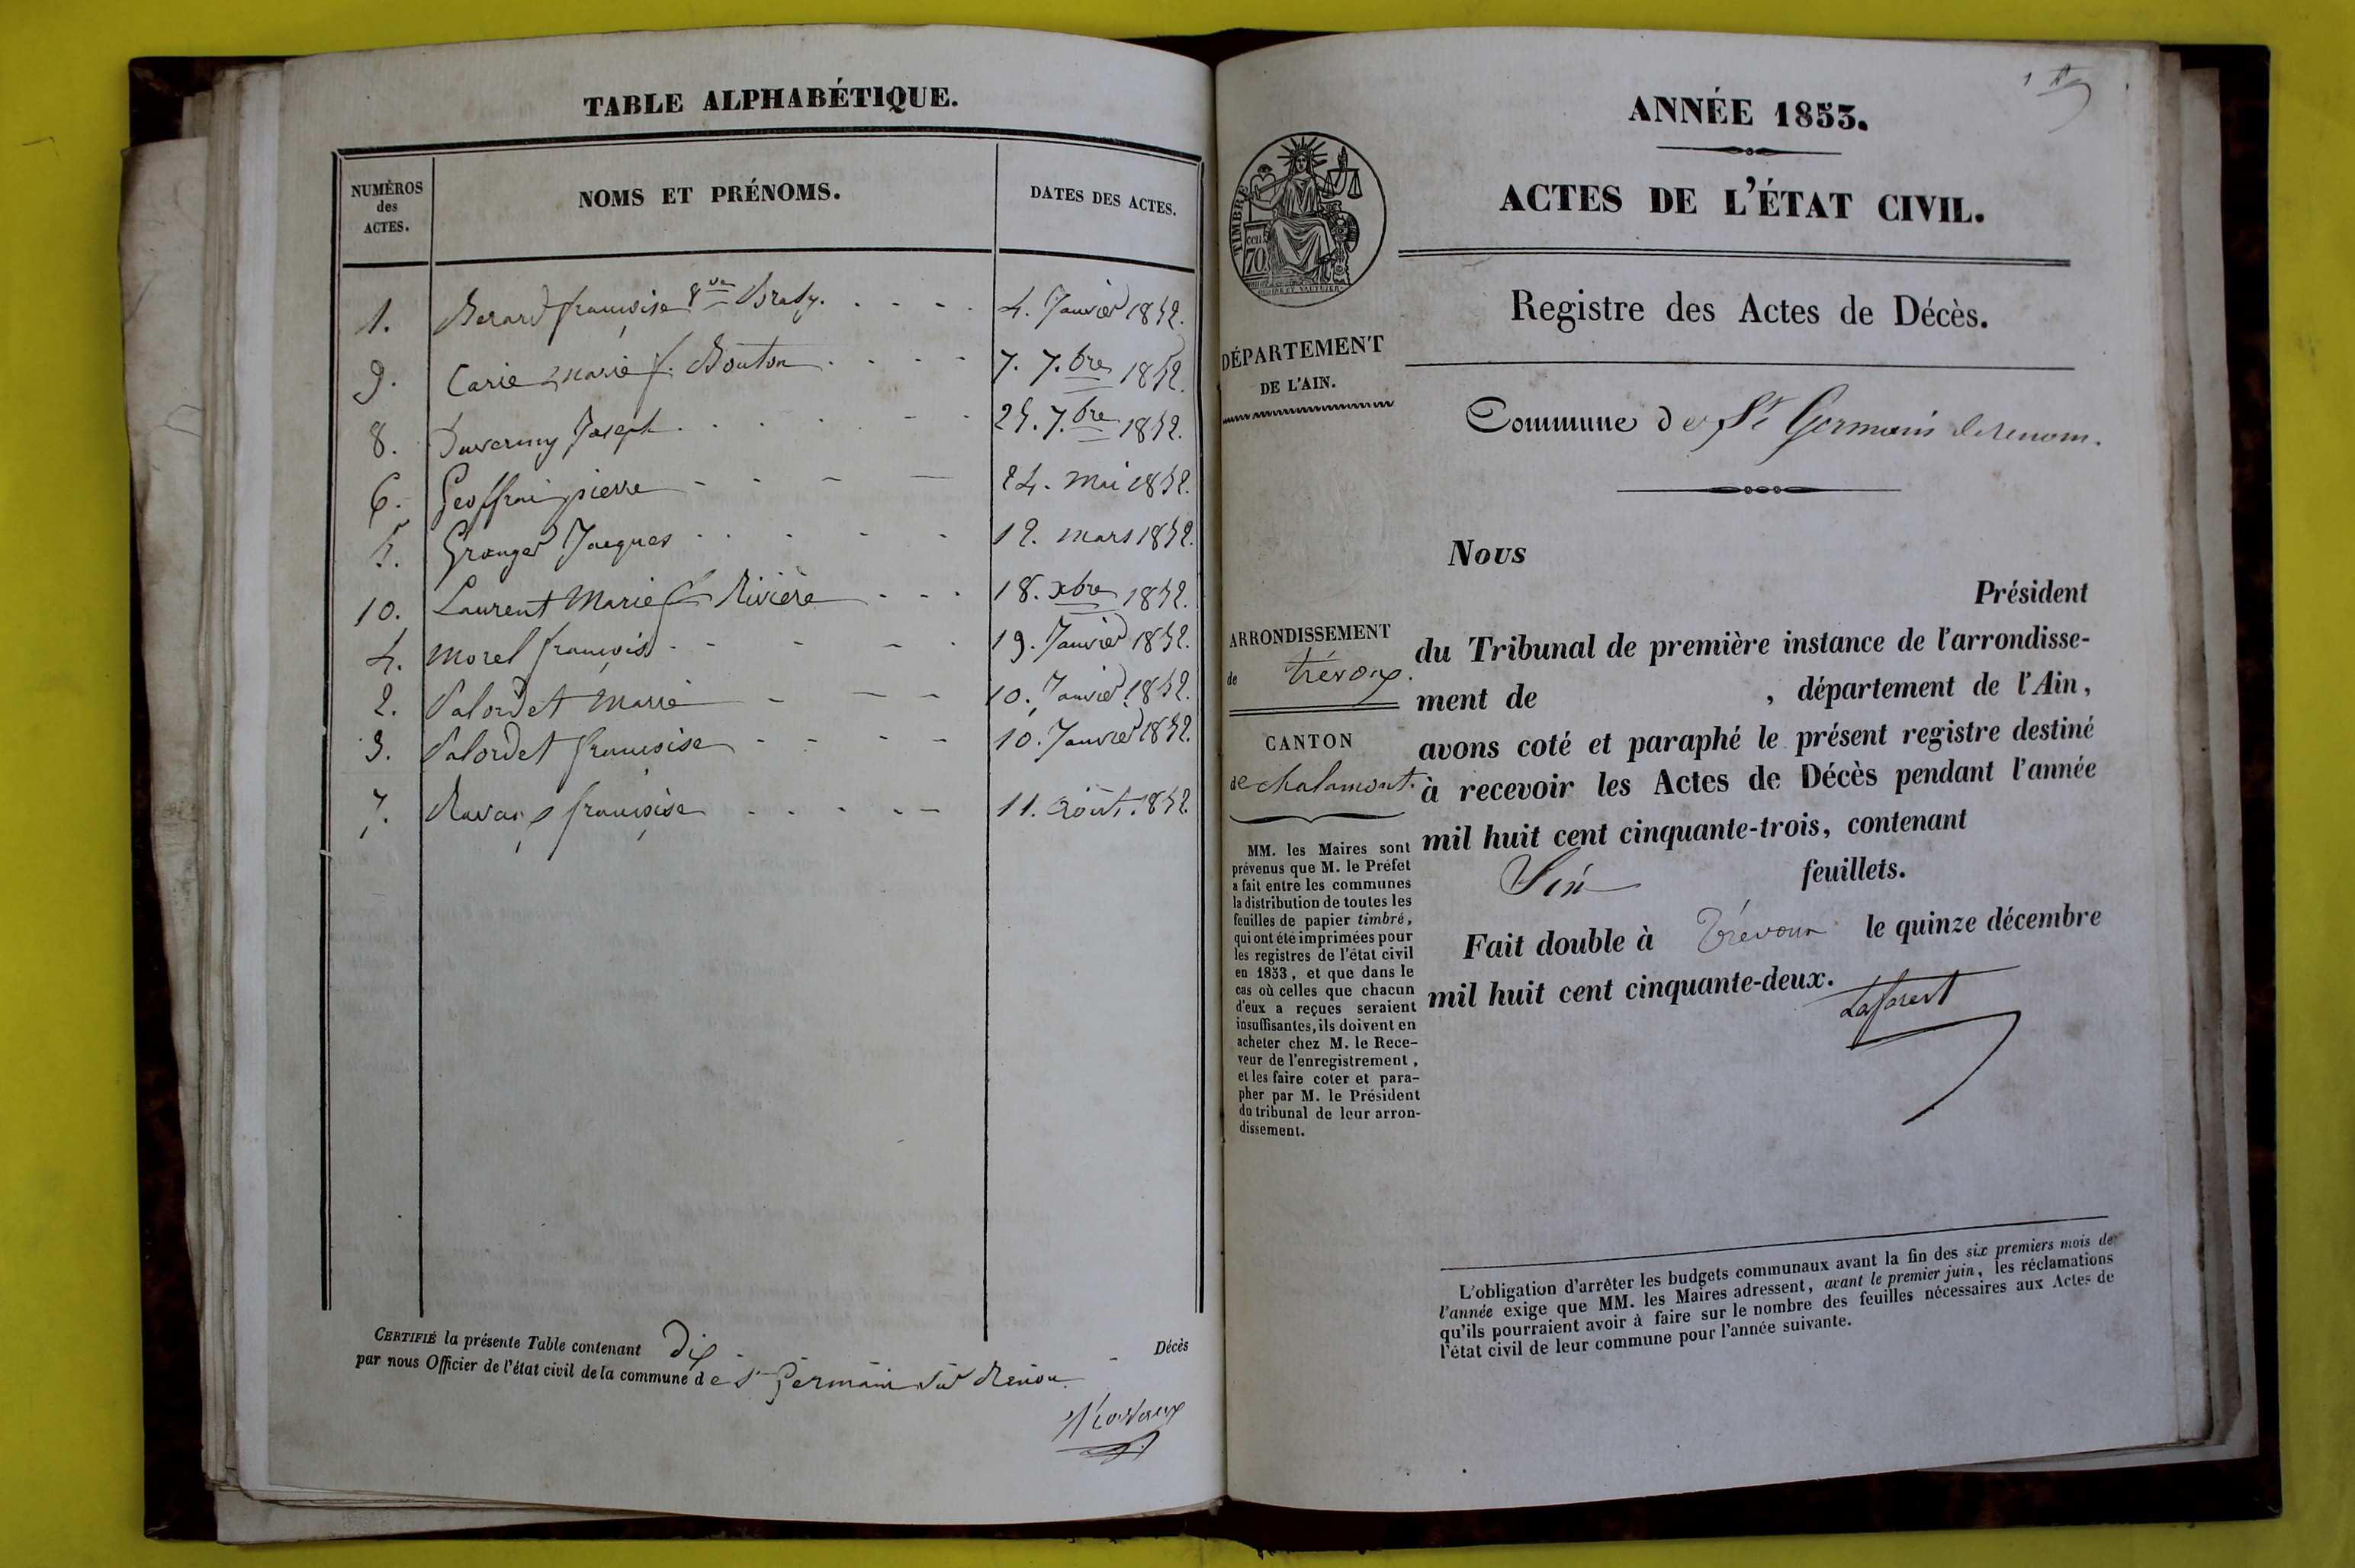 TABLE ALPHABÉTIQUE.
NUMÉROS
des
ACTES.
NOMS ET PRÉNOMS.
DATES DES ACTES.
1. Berard françoise vve . . . . 4. Janvier 1852.
9. Carie Marie f. Bouton . . . - 7. 7.bre 1852.
8. Duverny Joseph . . . . - . 25. 7.bre 1852.
6. Geoffrai pierre - - - — 24. mai 1852.
5. Granger Jacques . . . - . 12. mars 1852.
10. Laurent Marie f. Rivière - . . 18. xbre 1852.
4. Morel françois . - - - . 19. Janvier 1852.
2. Palordet Marie - — - 10. Janvier 1852.
3. Palordet françoise - - - - 10. Janvier 1852.
7. françoise . . . . - 11. août. 1852.
CERTIFIÉ la présente Table contenant Dix Décès
par nous Officier de l'état civil de la commune de St Germain sur Renon.
1
ANNÉE 1853.
ACTES DE L'ÉTAT CIVIL.
TIMBRE
cen
70
Registre des Actes de Décès.
DÉPARTEMENT
DE L'AIN.
Commune de St Germain de renom.
Nous
Président
du Tribunal de première instance de l'arrondisse-
ment de , département de l'Ain,
avons coté et paraphé le présent registre destiné
à recevoir les Actes de Décès pendant l'année
mil huit cent cinquante-trois, contenant
Six feuillets.
Fait double à Trévoux le quinze décembre
mil huit cent cinquante-deux.
Laforest
ARRONDISSEMENT
de trévoux.
CANTON
de chalamont.
MM. les Maires sont
prévenus que M. le Préfet
a fait entre les communes
la distribution de toutes les
feuilles de papier timbré,
qui ont été imprimées pour
les registres de l'état civil
en 1853, et que dans le
cas où celles que chacun
d'eux a reçues seraient
insuffisantes, ils doivent en
acheter chez M. le Rece-
veur de l'enregistrement,
et les faire coter et para-
pher par M. le Président
du tribunal de leur arron-
dissement.
L'obligation d'arrêter les budgets communaux avant la fin des six premiers mois de
l'année exige que MM. les Maires adressent, avant le premier juin, les réclamations
qu'ils pourraient avoir à faire sur le nombre des feuilles nécessaires aux Actes de
l'état civil de leur commune pour l'année suivante.